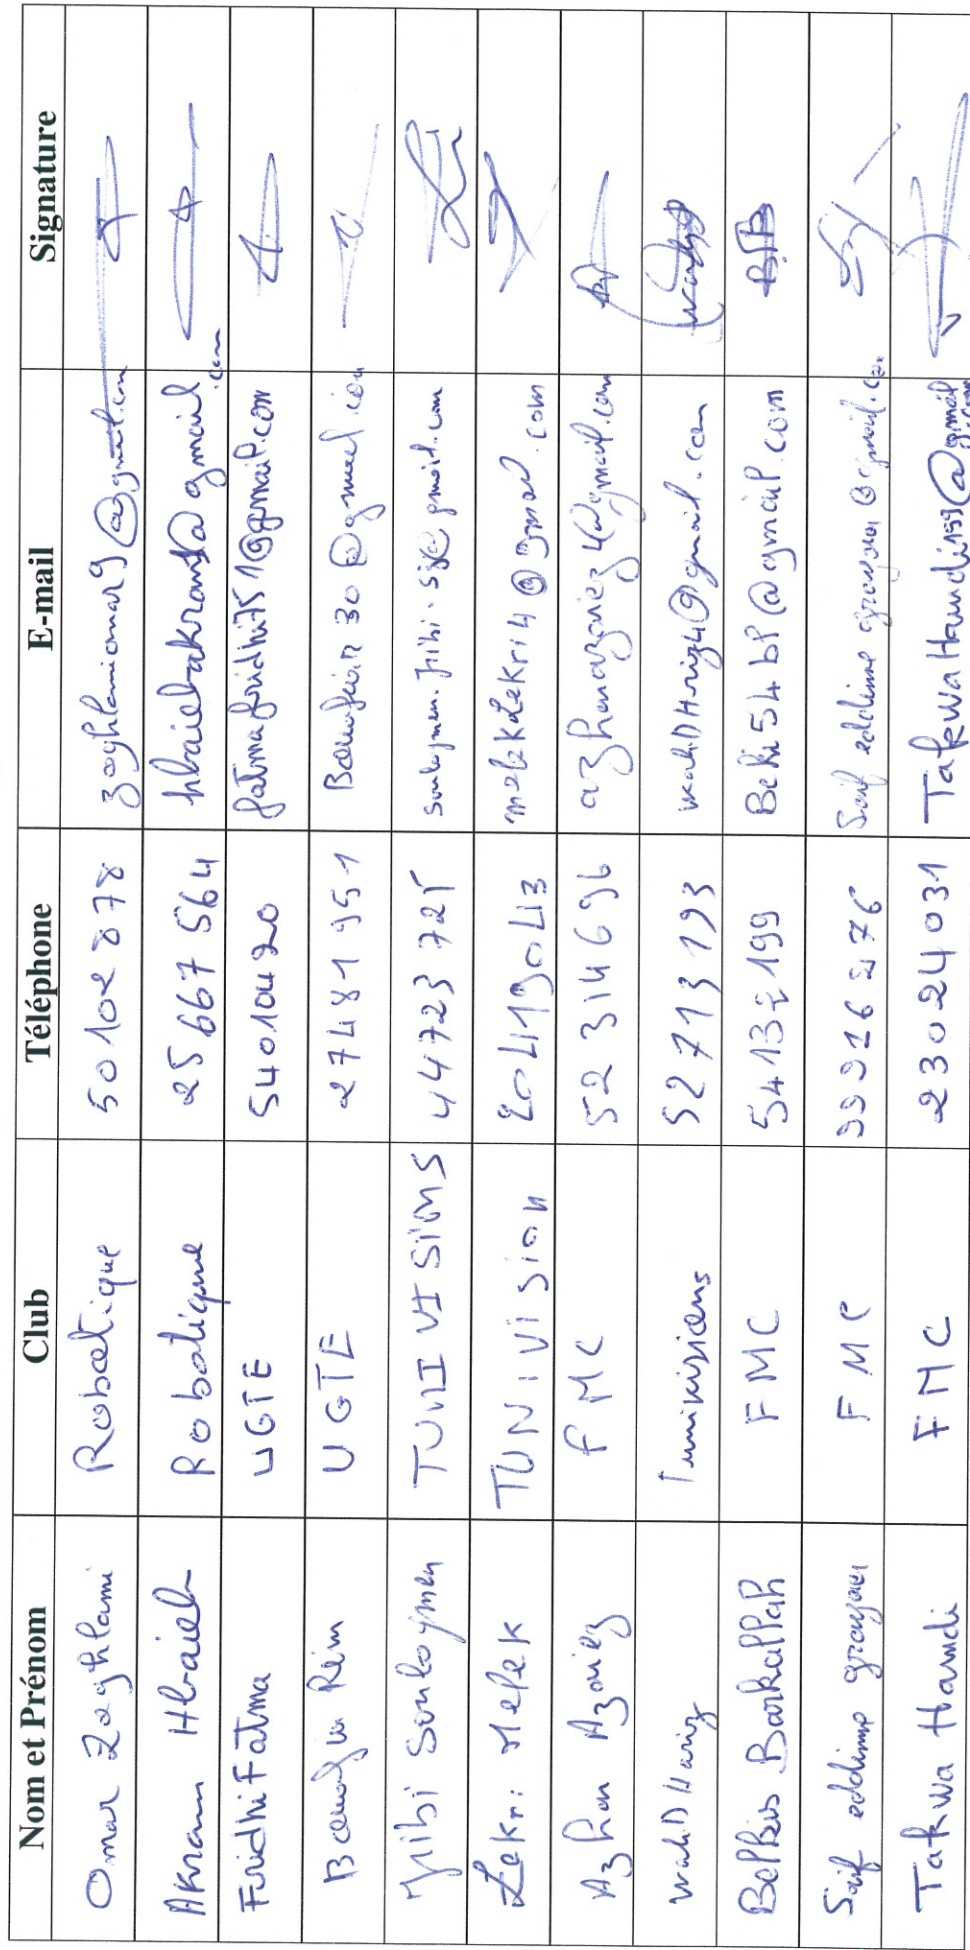 Nom et Prénom Club Téléphone E-mail Signature
Omar Zoghlami Robotique 50102878 zoghlamiomar9@gmail.com
Akram Hbaieb Robotique 25667564 hbaiebakram1@gmail.com
Furidhi Fatma UGTE 54010420 fatmafuridhi751@gmail.com
Rim UGTE 27481951
Jribi Soulaymen TUNIVISIONS 44723725 soulaymen.jribi.sjr@gmail.com
Zekri Melek TUNIVISION 20419043 melekzekri4@gmail.com
Azhar Azaiez FMC 52314696 azharazaiez4@gmail.com
WahiD Hariz Tunivisions 52713193 wahiDHriz4@gmail.com
Belkis Barkallah FMC 5413 199 Beki54bl@gmail.com BB
Saif eddine FMC 99926276
Takwa Hamdi FMC 23024031 TakwaHamdi159@gmail.com